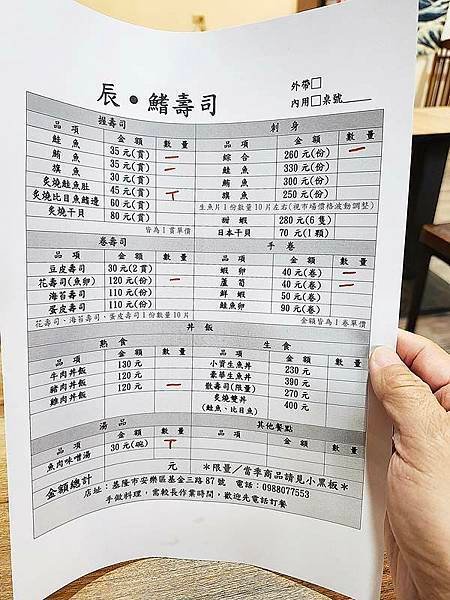 辰•鰭壽司
外帶□
內用□桌號____
握壽司
品 項 金 額 數 量
鮭 魚 35 元(貫)
鮪 魚 35 元(貫) 一
旗 魚 35 元(貫) 一
炙燒鮭魚肚 30 元(貫)
炙燒比目魚鰭邊 45 元(貫) T
炙燒干貝 60 元(貫)
80 元(貫)
皆為1貫單價
刺 身
品 項 金 額 數 量
綜 合 260 元(份) 一
鮭 魚 330 元(份)
鮪 魚 300 元(份)
旗 魚 250 元(份)
生魚片1份數量10片左右(視市場價格波動調整)
甜 蝦 280 元(6隻)
日本干貝 70 元(1顆)
卷壽司
品 項 金 額 數 量
豆皮壽司 30 元(2貫)
花壽司(魚卵) 120 元(份) 一
海苔壽司 110 元(份)
蛋皮壽司 110 元(份)
花壽司、海苔壽司、蛋皮壽司1份數量10片
手 卷
品 項 金 額 數 量
蝦 卵 40 元(卷) 一
蘆 筍 40 元(卷) 一
鮮 蝦 50 元(卷)
鮭魚卵 90 元(卷)
金額皆為1卷單價
丼 飯
熱 食
品 項 金 額 數 量
牛肉丼飯 130 元
豬肉丼飯 120 元
雞肉丼飯 120 元 一
生 食
品 項 金 額 數 量
小資生魚丼 230 元
豪華生魚丼 390 元
散壽司(限量) 270 元
炙燒雙丼 400 元
(鮭魚、比目魚)
湯 品
品 項 金 額 數 量
魚肉味噌湯 30 元(碗) T
其他餐點
品 項 金 額 數 量
金額總計 元
＊限量／當季商品請見小黑板＊
店址：基隆市安樂區基金三路87號 電話：0988077553
手做料理，需較長作業時間，歡迎先電話訂餐